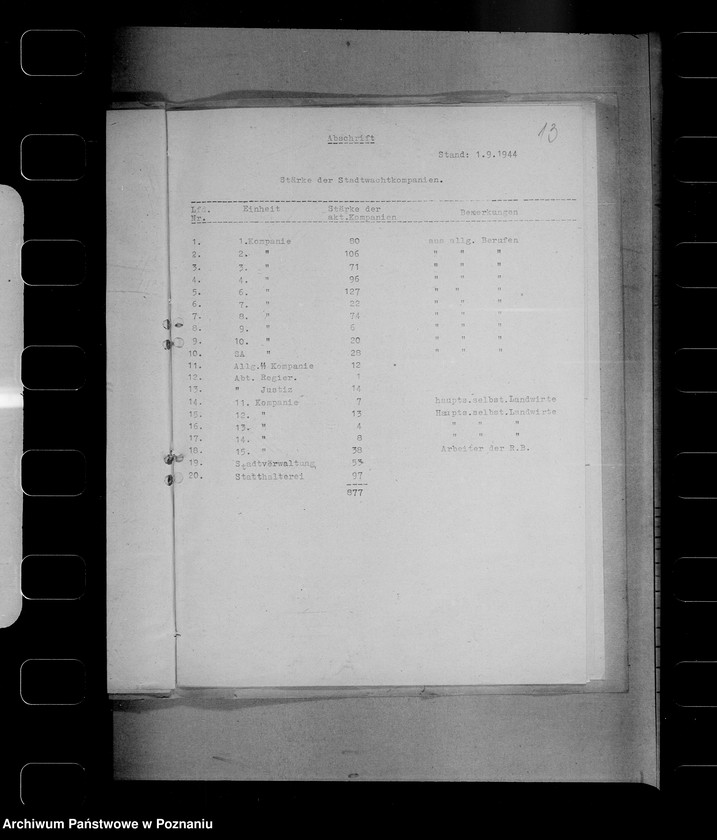 13
Abschrift
Stand: 1.9.1944
Stärke der Stadtwachtkompanien.
Lfd. Nr. Einheit Stärke der akt.Kompanien Bemerkungen
1. 1.Kompanie 80 aus allg. Berufen
2. 2. " 106 " " "
3. 3. " 71 " " "
4. 4. " 96 " " "
5. 6. " 127 " " "
6. 7. " 22 " " "
7. 8. " 74 " " "
8. 9. " 6 " " "
9. 10. " 20 " " "
10. SA " 28 " " "
11. Allg.SS Kompanie 12
12. Abt. Regier. 1
13. " Justiz 14
14. 11. Kompanie 7 haupts.selbst.Landwirte
15. 12. " 13 Haupts.selbst.Landwirte
16. 13. " 4 " " "
17. 14. " 8 " " "
18. 15. " 38 Arbeiter der R.B.
19. Stadtverwaltung 53
20. Statthalterei 97
877
Archiwum Państwowe w Poznaniu